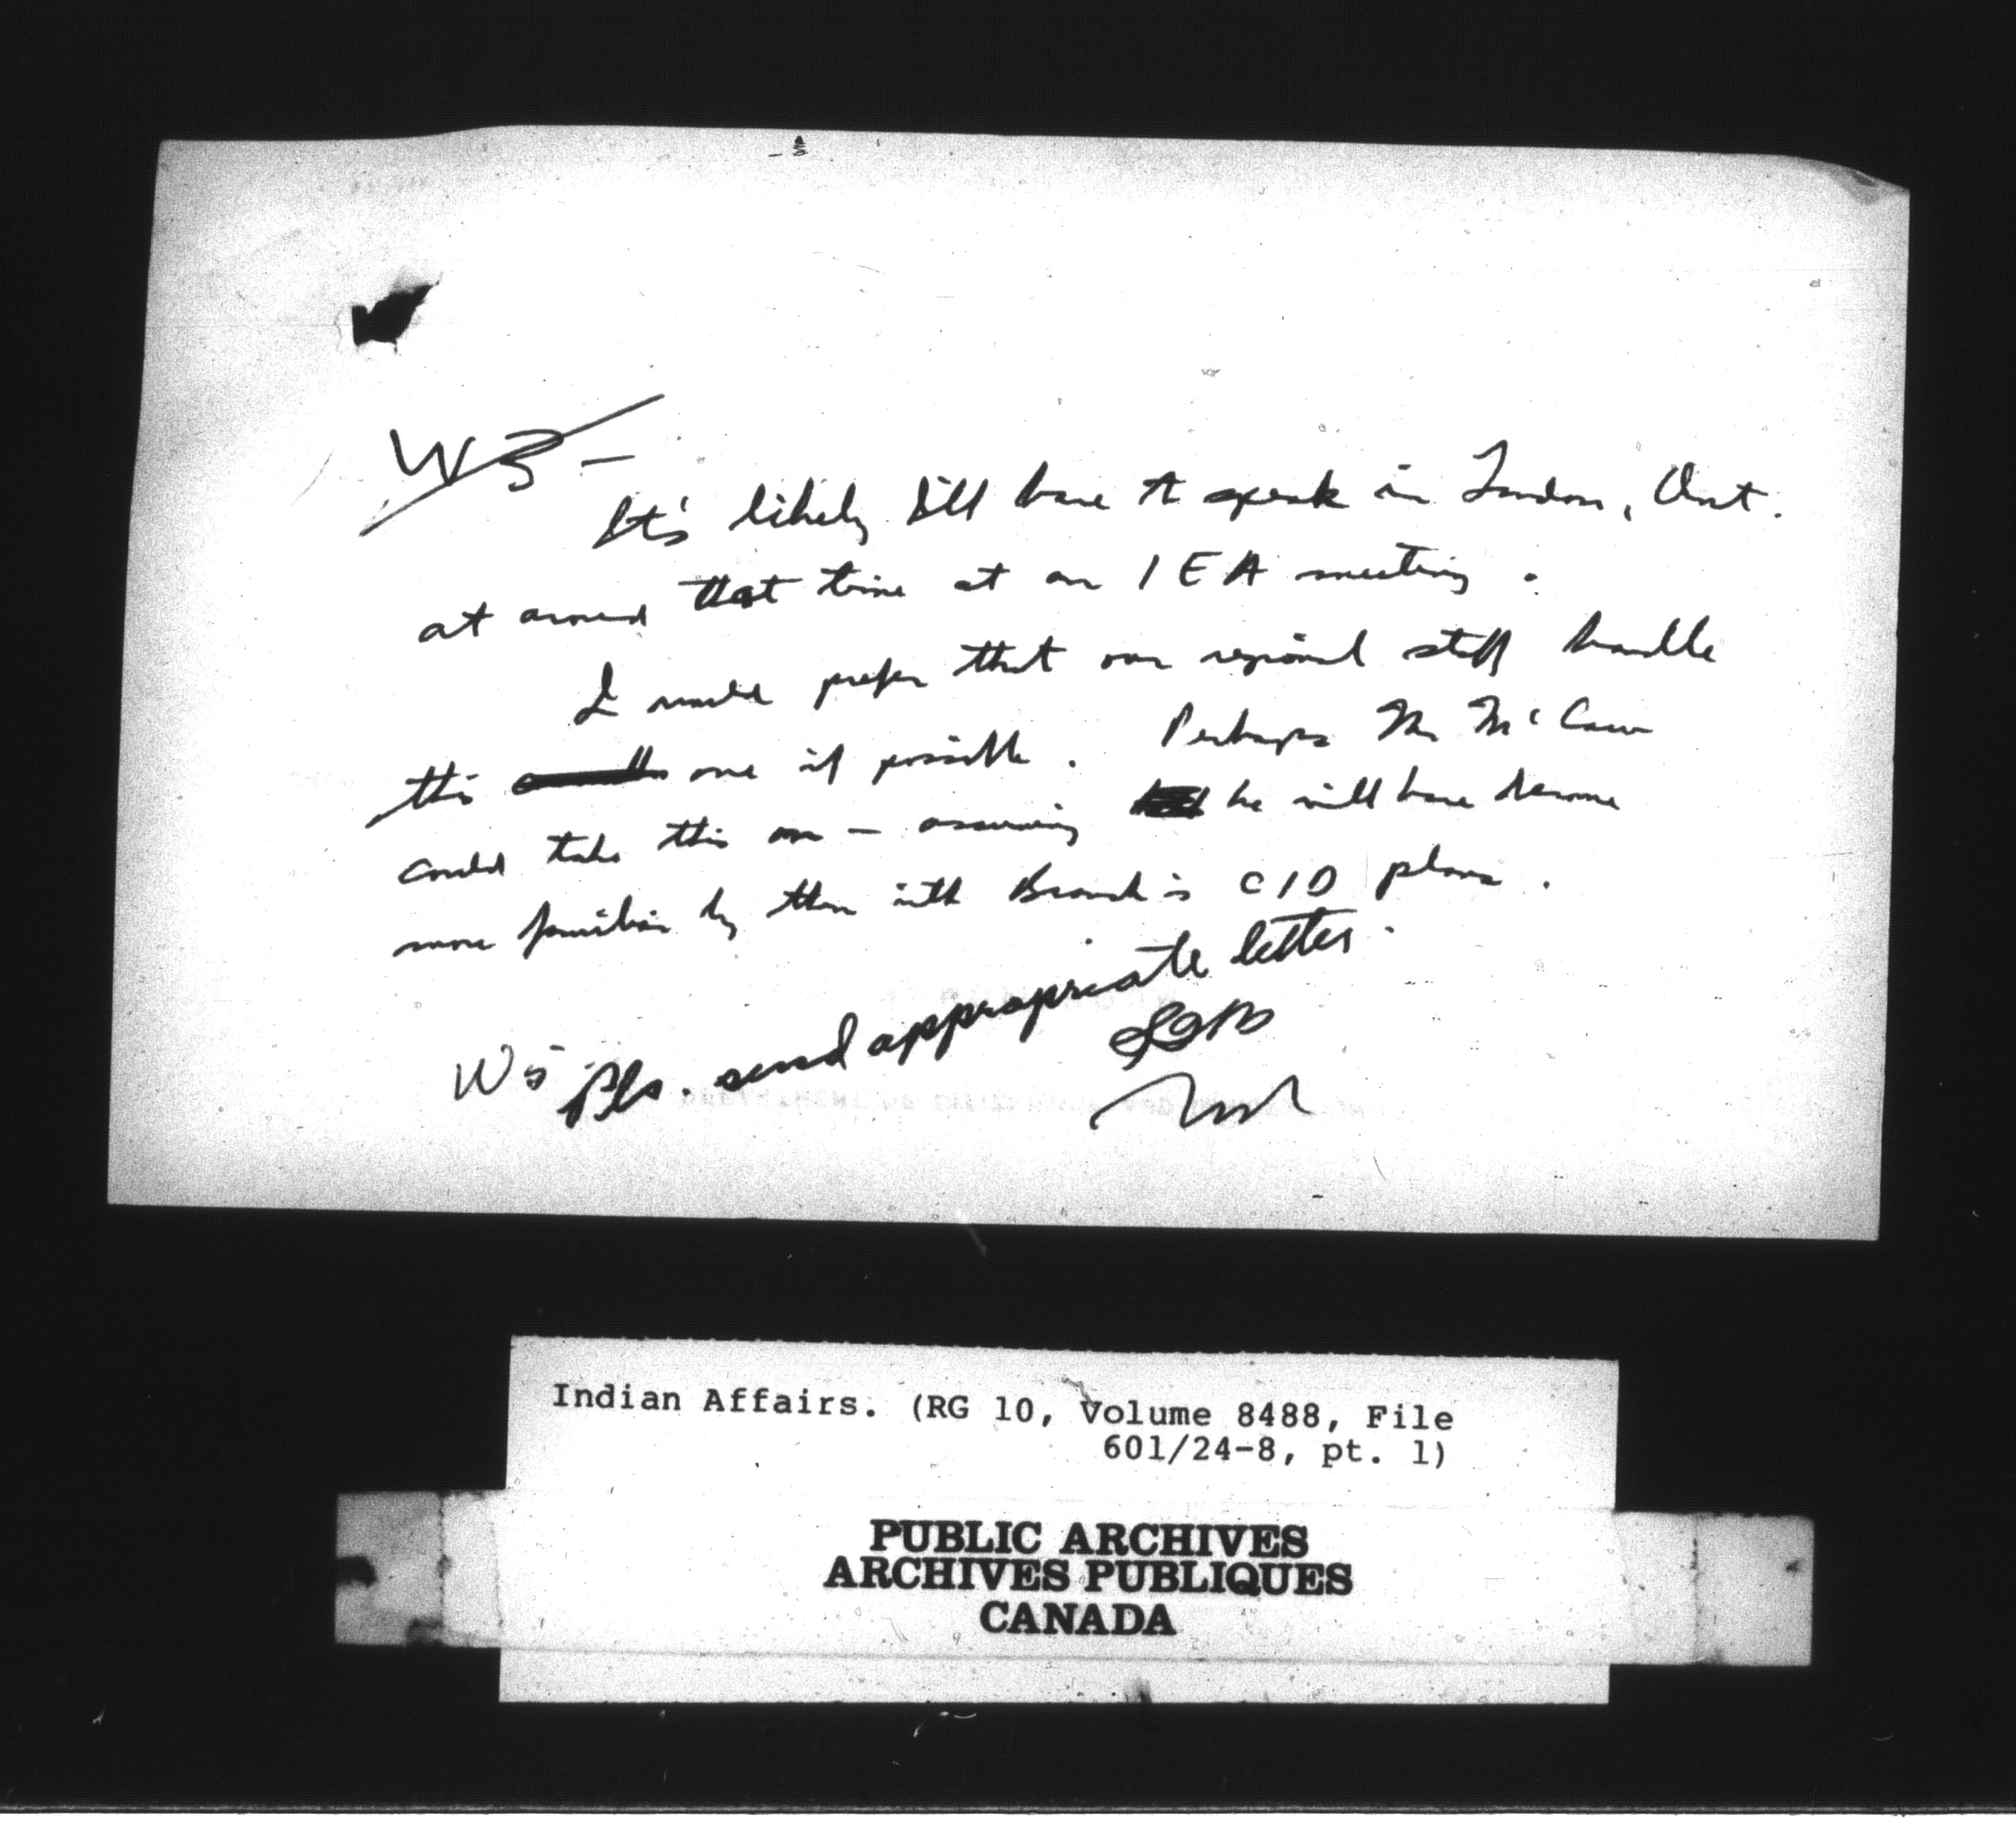 W3 -
It's likely I'll have to speak in London, Ont.
at around that time at an IEA meeting.
I would prefer that our regional staff handle
this one if possible. Perhaps Mr McCaw
could take this on - assuming he will have become
more familiar by then with Branch's CID plans.
W5 Pls. send appropriate letter.
Indian Affairs. (RG 10, Volume 8488, File
601/24-8, pt. 1)
PUBLIC ARCHIVES
ARCHIVES PUBLIQUES
CANADA